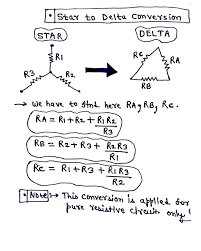 • Star to Delta Conversion
STAR
DELTA
R1
R3
R2
RC
RA
RB
→ we have to find here RA, RB, RC.
RA = R1 + R2 + R1R2/R3
RB = R2 + R3 + R2R3/R1
RC = R1 + R3 + R1R3/R2
• Note → This conversion is applied for
pure resistive circuit only!